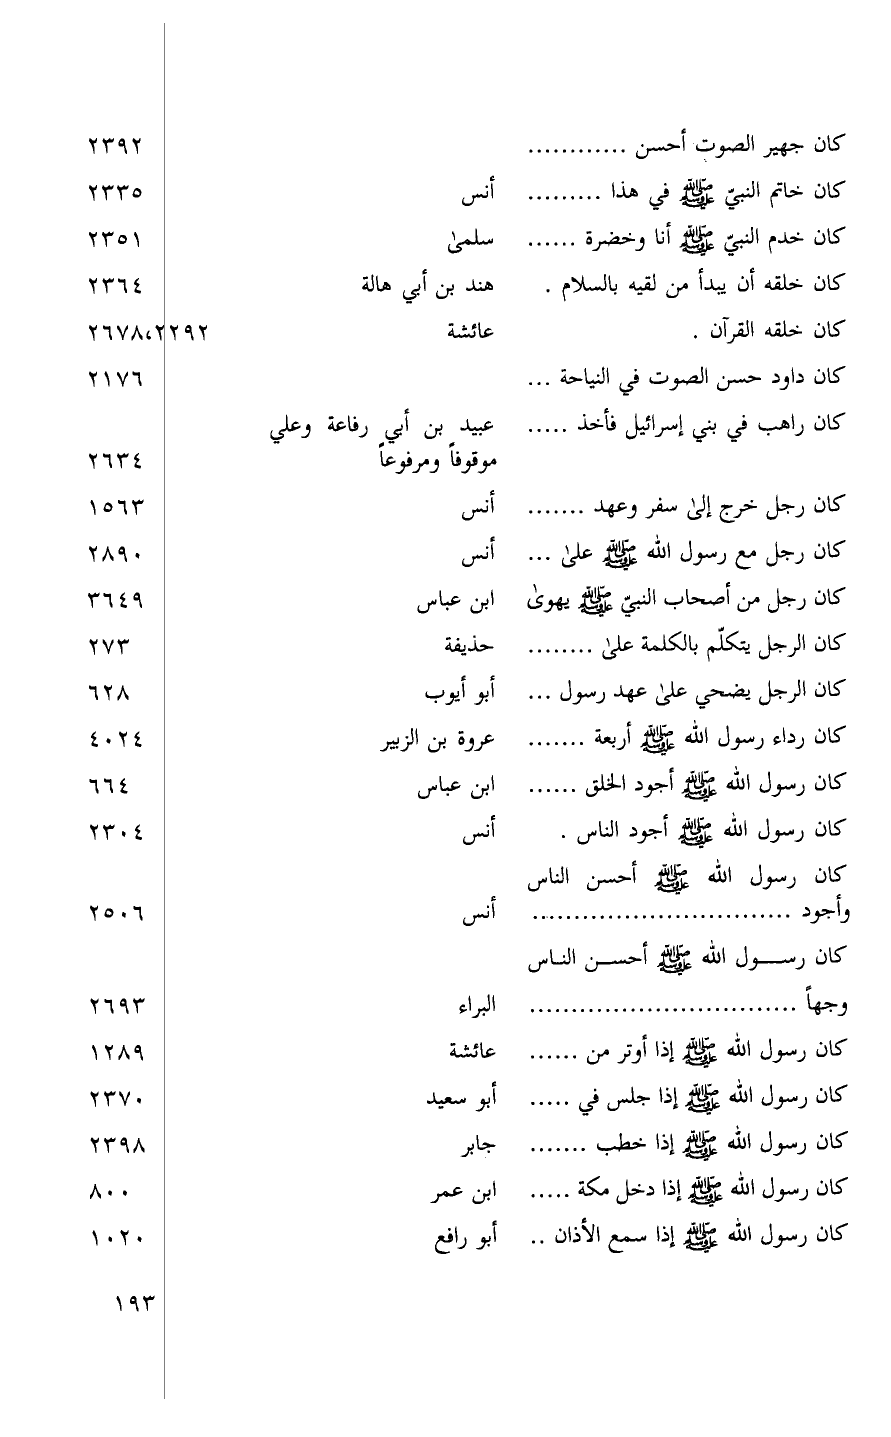 كان جهير الصوت أحسن ............ ٢٣٩٢
كان خاتم النبيّ ﷺ في هذا ......... أنس ٢٣٣٥
كان خدم النبيّ ﷺ أنا وخضرة ...... سلمىٰ ٢٣٥١
كان خلقه أن يبدأ من لقيه بالسلام . هند بن أبي هالة ٢٣٦٤
كان خلقه القرآن . عائشة ٢٢٩٢،٢٦٧٨
كان داود حسن الصوت في النياحة ... ٢١٧٦
كان راهب في بني إسرائيل فأخذ ..... عبيد بن أبي رفاعة وعلي
موقوفاً ومرفوعاً ٢٦٣٤
كان رجل خرج إلىٰ سفر وعهد ....... أنس ١٥٦٣
كان رجل مع رسول الله ﷺ علىٰ ... أنس ٢٨٩٠
كان رجل من أصحاب النبيّ ﷺ يهوىٰ ابن عباس ٣٦٤٩
كان الرجل يتكلّم بالكلمة علىٰ ........ حذيفة ٢٧٣
كان الرجل يضحي علىٰ عهد رسول ... أبو أيوب ٦٢٨
كان رداء رسول الله ﷺ أربعة ....... عروة بن الزبير ٤٠٢٤
كان رسول الله ﷺ أجود الخلق ...... ابن عباس ٦٦٤
كان رسول الله ﷺ أجود الناس . أنس ٢٣٠٤
كان رسول الله ﷺ أحسن الناس
وأجود ............................... أنس ٢٥٠٦
كان رســـول الله ﷺ أحســـن النـاس
وجهاً ................................ البراء ٢٦٩٣
كان رسول الله ﷺ إذا أوتر من ...... عائشة ١٢٨٩
كان رسول الله ﷺ إذا جلس في ..... أبو سعيد ٢٣٧٠
كان رسول الله ﷺ إذا خطب ....... جابر ٢٣٩٨
كان رسول الله ﷺ إذا دخل مكة ..... ابن عمر ٨٠٠
كان رسول الله ﷺ إذا سمع الأذان .. أبو رافع ١٠٢٠
١٩٣